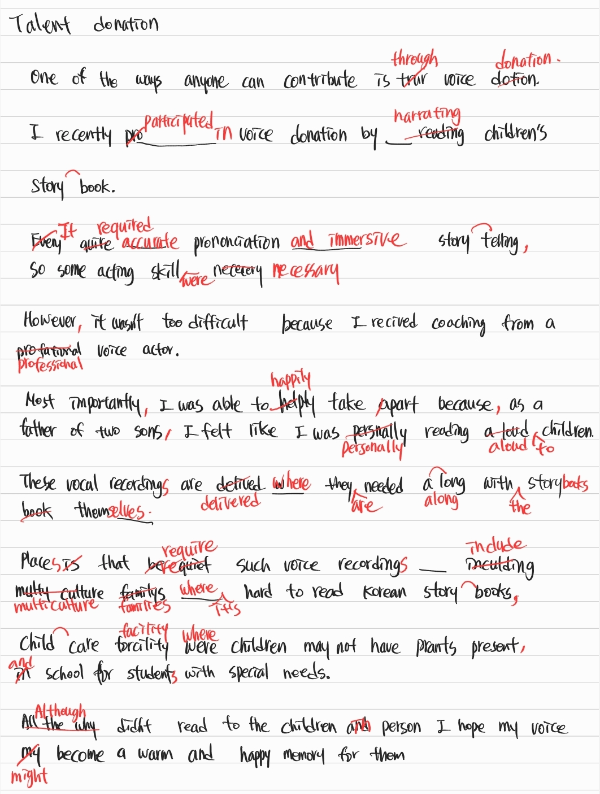 Talent donation
through donation.
One of the ways anyone can contribute is trur voice dotion.
participated in narrating
I recently pro voice donation by __ reading children's
story book.
It required
Every quite accurate prononciation and immersive story telling,
so some acting skill were necerery necessary
However, it wasn't too difficult because I recived coaching from a
profational voice actor.
professional
happily
Most importantly, I was able to helply take apart because, as a
father of two sons, I felt like I was persnally reading a loud to children.
personally aloud
These vocal recordings are delived where they are needed a long with the story books
delivered along
book themselves.
require include
Places is that be requiet such voice recordings __ inculding
multy culture familys where it's hard to read Korean story books,
multiculture families
facility where
Child care forcility were children may not have prants present,
and
in school for students with special needs.
Although
All the why didn't read to the children in person I hope my voice
my become a warm and happy memory for them
might